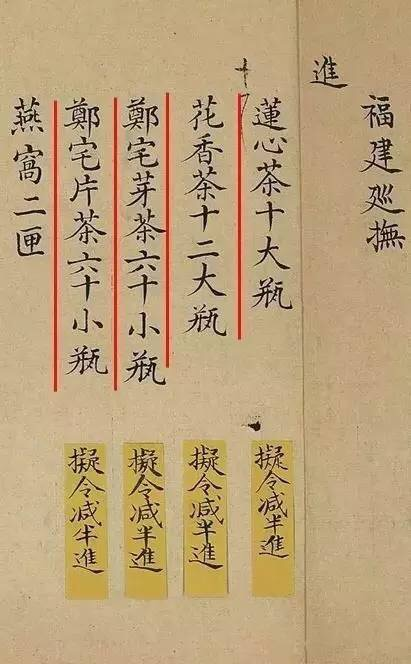 福建廵撫
進
蓮心茶十大瓶
花香茶十二大瓶
鄭宅芽茶六十小瓶
鄭宅片茶六十小瓶
燕窩二匣
擬令减半進
擬令减半進
擬令减半進
擬令减半進